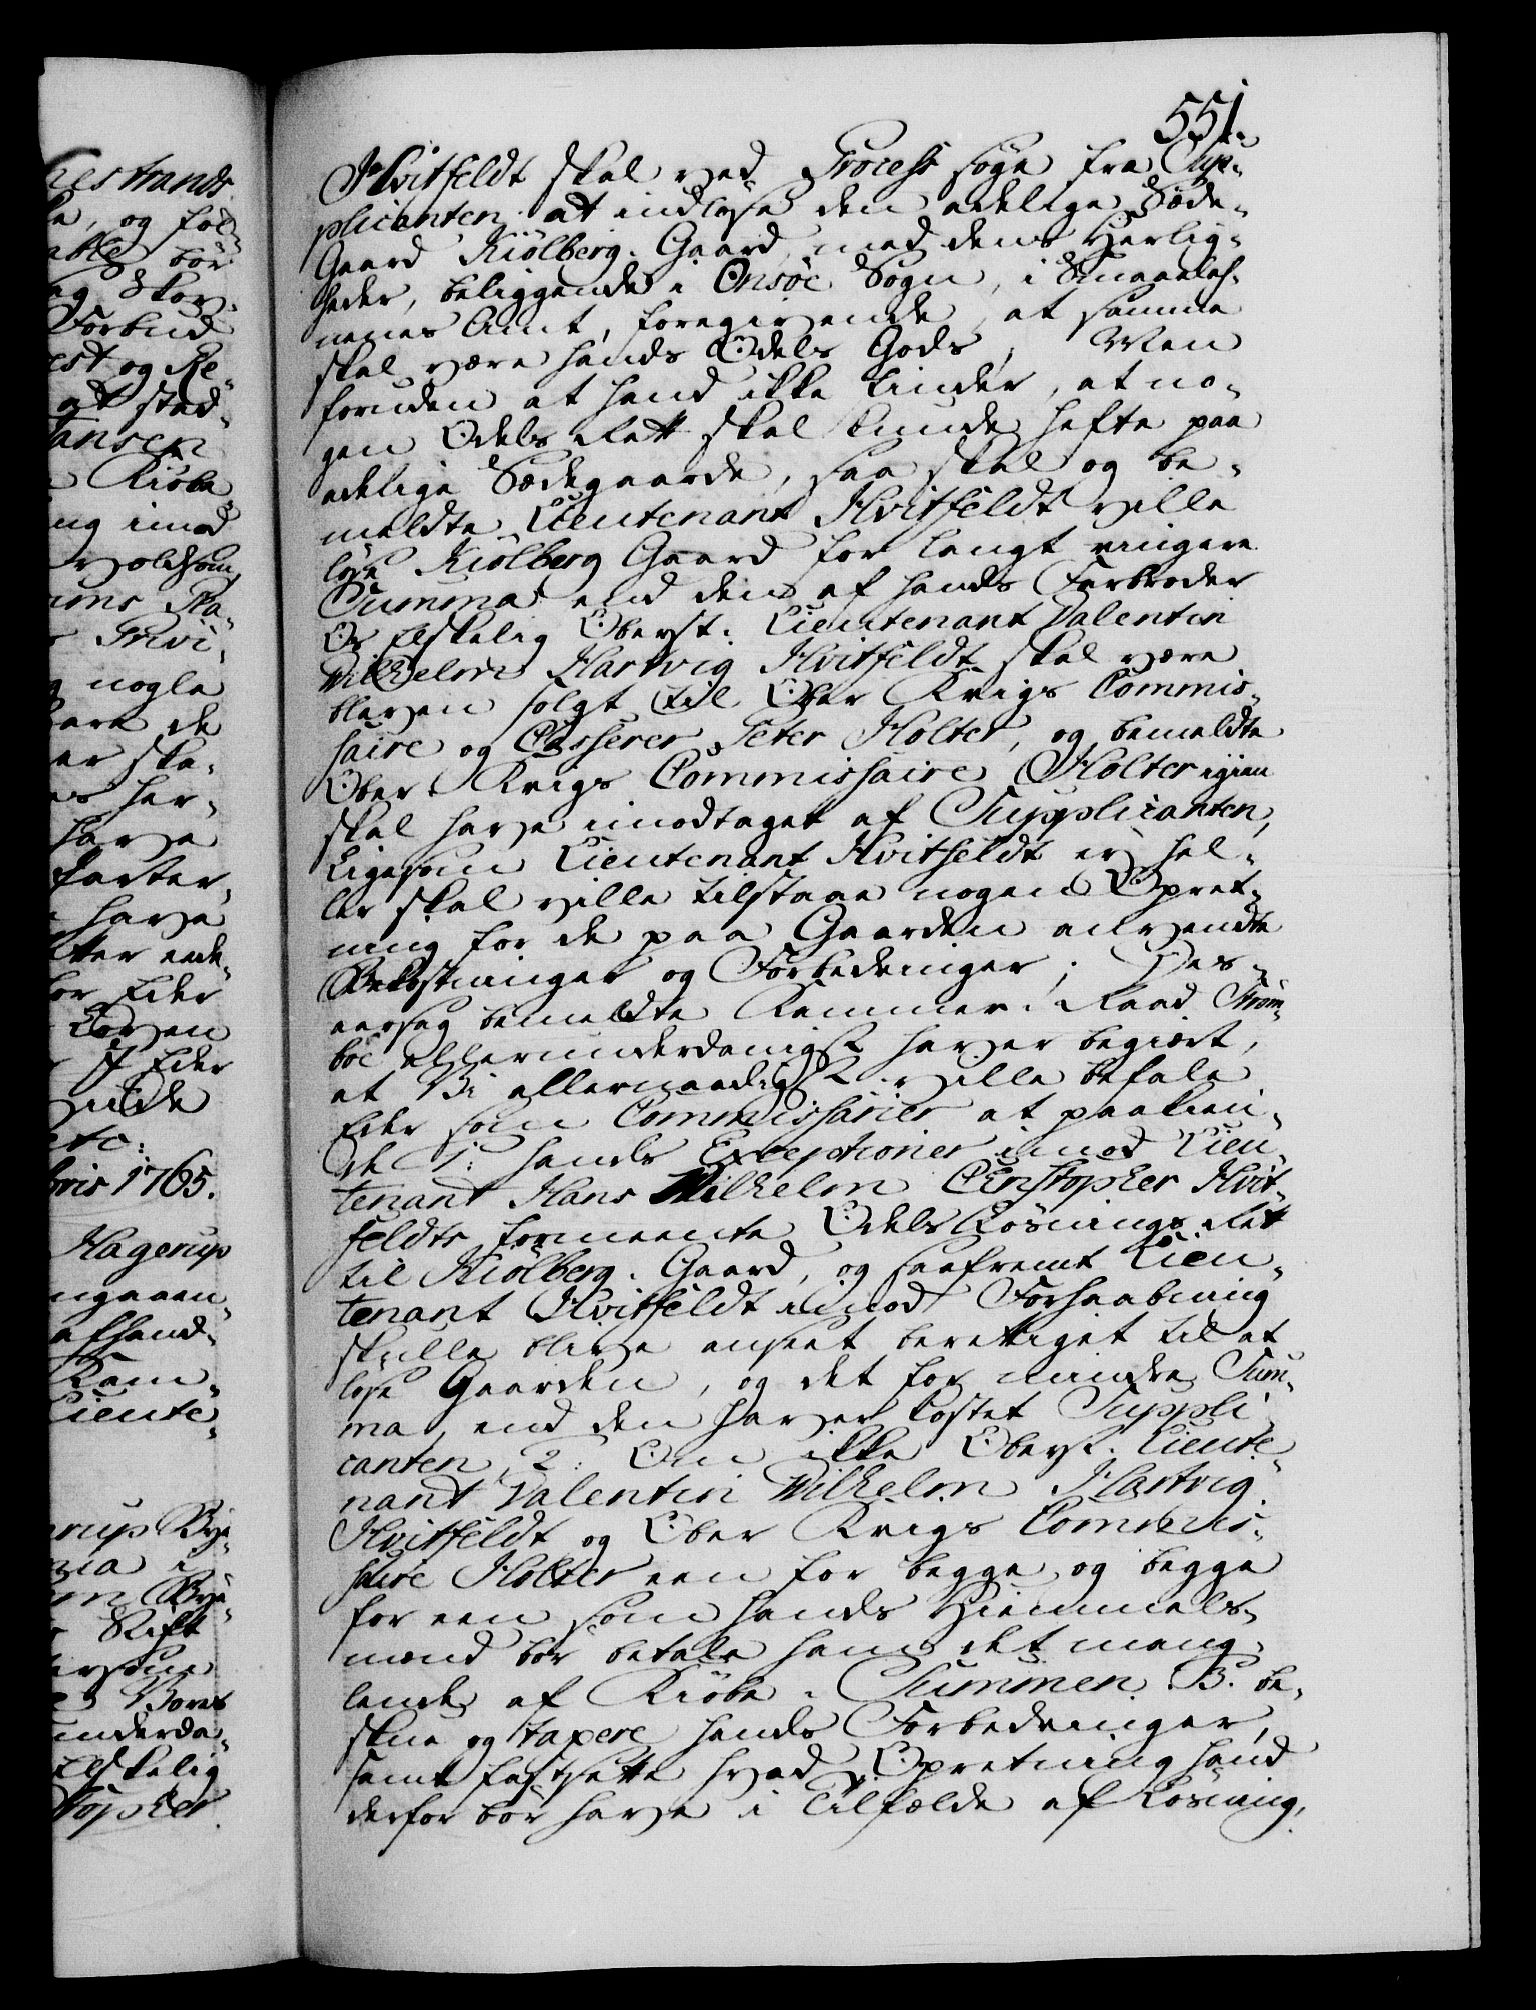 551.
Hvitfeldt skal ved Process söge fra Sup-
plicanten at indlöse den adelige Söde-
Gaard Kiölberg-Gaard med dens Herlig-
heder, beliggende i Onsöe Sogn, i Smaaleh-
nenes Amt, foregivende, at samme
skal være hands Odels Gods, Men
foruden at hand ikke kiender, at no-
gen Odels Rett skal kunde hefte paa
adelige Sædegaarde, saa skal og be-
meldte Lieutenant Hvitfeldt ville
löse Kiölberg Gaard for langt ringere
Summa end den af hands Farbroder
Os Elskelig Oberst-Lieutenant Valentin
Wilhelm Hartvig Hvitfeldt skal være
bleven solgt til Ober Krigs Commis-
saire og Casserer Peter Holter, og bemeldte
Ober-Krigs Commissaire Holter igien
skal have imodtaget af Supplicanten,
Ligesom Lieutenant Hvitfeldt ey hel-
ler skal ville tilstaae nogen Opret-
ning for de paa Gaarden anvendte
Bekostninger og Forbedringer; Des-
aarsag bemeldte Kammer-Raad Ström-
böe allerunderdanigst haver begiert,
at Vi allernaadigst ville befale
Eder som Commissarier at paakien-
de 1: hands Exceptioner imod Lieu-
tenant Hans Wilhelm Christopher Hvit-
feldts formeente Odels Lösnings Rett
til Kiölberg-Gaard, og saafremt Lieu-
tenant Hvitfeldt imod Forhaabning
skulle blive anseet berettiget til at
löse Gaarden, og det for mindre Sum-
ma, end den haver kostet Suppli-
canten, 2: Om ikke Oberst-Lieute-
nant Valentin Wilhelm Hartvig
Hvitfeldt og Ober Krigs Commis-
saire Holter een for begge og begge
for een som hands Hiemmels-
mænd bör betale ham det mang-
lende af Kiöbe-Summen. 3. be-
skue og taxere hands Forbedringer,
samt fastsætte hvad Opretning hand
derfor bör have i Tilfælde af Lösning,